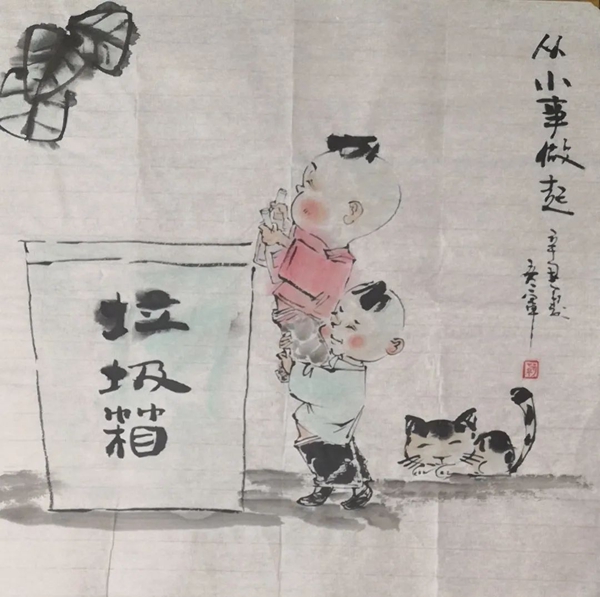 从小事做起
辛丑夏
垃圾箱